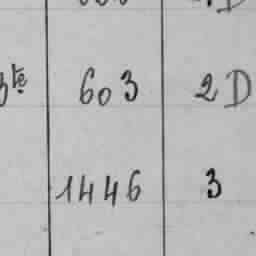 3te 603 2D
1446 3